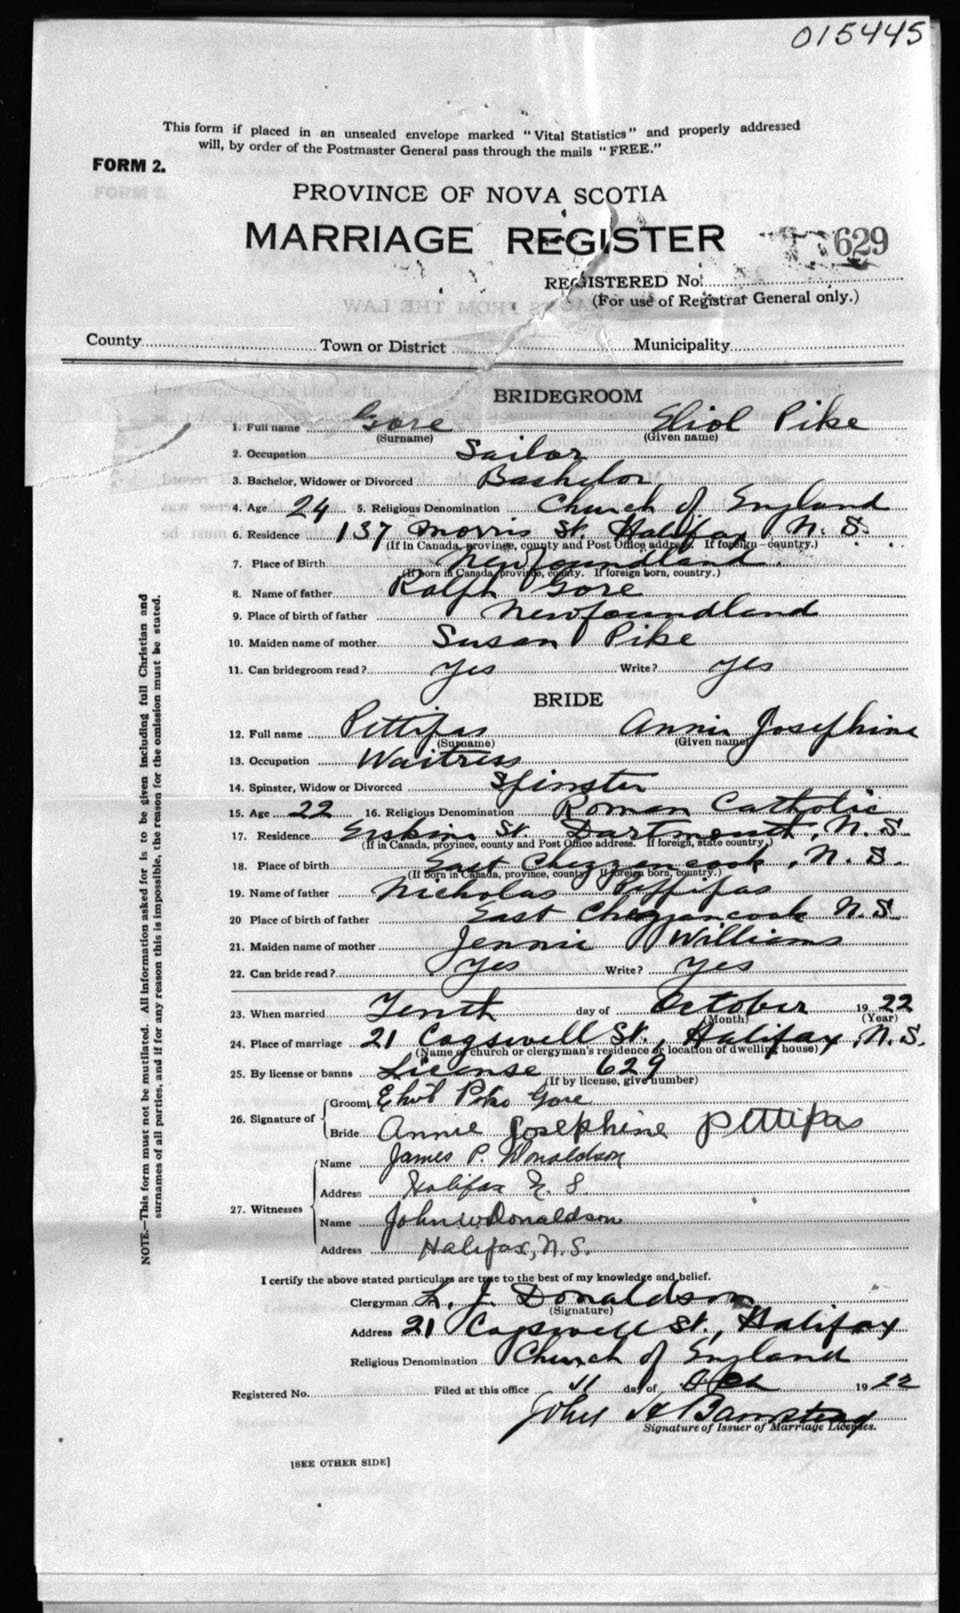 015445
This form if placed in an unsealed envelope marked "Vital Statistics" and properly addressed
will, by order of the Postmaster General pass through the mails "FREE."
FORM 2.
PROVINCE OF NOVA SCOTIA
MARRIAGE REGISTER
629
REGISTERED No.
(For use of Registrat General only.)
County Town or District Municipality
BRIDEGROOM
1. Full name Gore Eliol Pike
(Surname) (Given name)
2. Occupation Sailor
3. Bachelor, Widower or Divorced Bachelor
4. Age 24 5. Religious Denomination Church of England
6. Residence 137 Morris St. Halifax N. S.
(If in Canada, province, county and Post Office address. If foreign—country.)
7. Place of Birth Newfoundland.
(If born in Canada, province, county. If foreign born, country.)
8. Name of father Ralph Gore
9. Place of birth of father Newfoundland
10. Maiden name of mother Susan Pike
11. Can bridegroom read? Yes Write? Yes
BRIDE
12. Full name Pettipas Annie Josephine
(Surname) (Given name)
13. Occupation Waitress
14. Spinster, Widow or Divorced Spinster
15. Age 22 16. Religious Denomination Roman Catholic
17. Residence Erskine St. Dartmouth, N. S.
(If in Canada, province, county and Post Office address. If foreign, state country.)
18. Place of birth East Chezzencook, N. S.
(If born in Canada, province, county. If foreign born, country.)
19. Name of father Nicholas Pettipas
20 Place of birth of father East Chezzencook N.S.
21. Maiden name of mother Jennie Williams
22. Can bride read? Yes Write? Yes
23. When married Tenth day of October 1922
(Month) (Year)
24. Place of marriage 21 Cogswell St., Halifax, N.S.
(Name of church or clergyman's residence or location of dwelling house)
25. By license or banns License 629
(If by license, give number)
26. Signature of Groom Pike Gore
Bride Annie Josephine Pettipas
27. Witnesses Name James P. Donaldson
Address Halifax N. S.
Name John W Donaldson
Address Halifax, N.S.
I certify the above stated particulars are true to the best of my knowledge and belief.
Clergyman L. J. Donaldson
(Signature)
Address 21 Cogswell St., Halifax
Religious Denomination Church of England
Registered No. Filed at this office 11 day of Oct 1922
John A
Signature of Issuer of Marriage Licenses.
[SEE OTHER SIDE]
NOTE.—This form must not be mutilated. All information asked for is to be given including full Christian and
surnames of all parties, and if for any reason this is impossible, the reason for the omission must be stated.